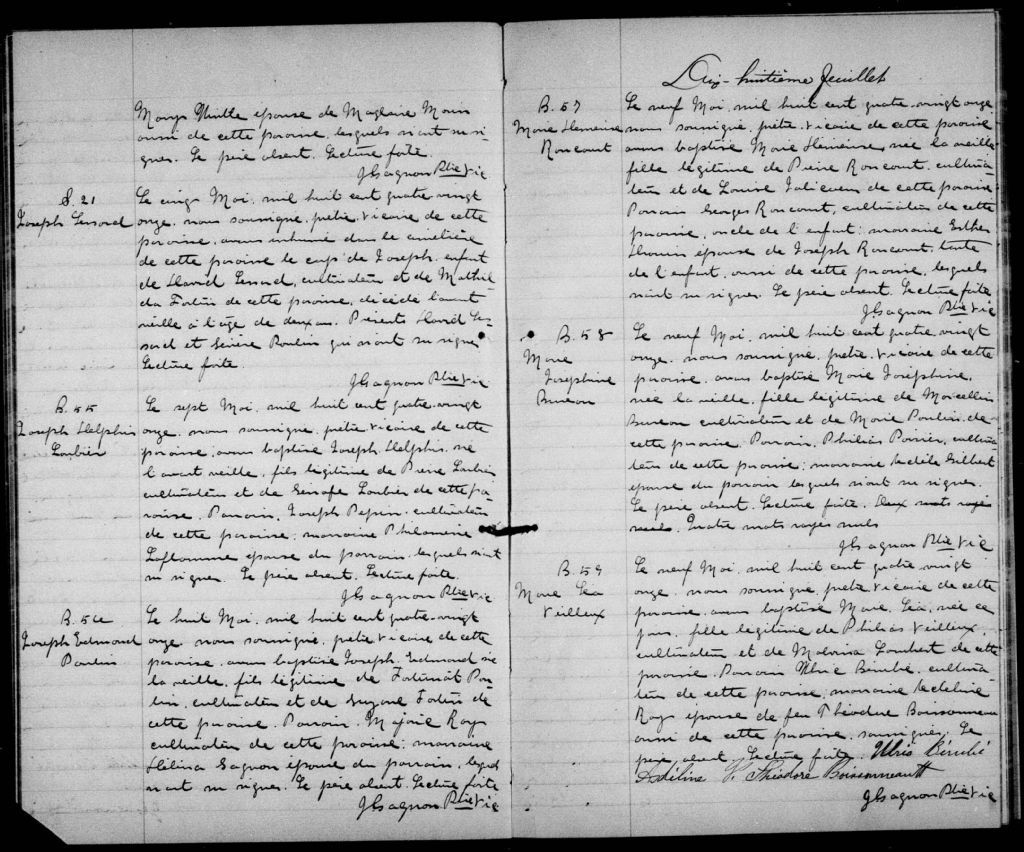 Mary Mille épouse de Magloire Morin
aussi de cette paroisse, lesquels n'ont su si-
gner. Le père absent. Lecture faite.
JGagnon Ptre Vic
S. 21
Joseph Lessard
Le cinq Mai, mil huit cent quatre-vingt
onze, nous soussigné, prêtre vicaire de cette
paroisse, avons inhumé dans le cimetière
de cette paroisse le corps de Joseph, enfant
de David Lessard, cultivateur et de Mathil-
da Fortin de cette paroisse, décédé l'avant
veille à l'âge de deux ans. Présents David Les-
sard et Poulin qui n'ont su signer
Lecture faite.
JGagnon Ptre Vic
B. 55
Joseph Delphis
Loubier
Le sept Mai, mil huit cent quatre-vingt
onze, nous soussigné, prêtre vicaire de cette
paroisse, avons baptisé Joseph Delphis, né
l'avant veille, fils légitime de Pierre Loubier
cultivateur et de Loubier de cette pa-
roisse. Parrain, Joseph Pepin, cultivateur
de cette paroisse; marraine Philomène
Laflamme épouse du parrain, lesquels n'ont
su signer. Le père absent. Lecture faite.
JGagnon Ptre Vic
B. 56
Joseph Edmond
Poulin
Le huit Mai, mil huit cent quatre-vingt
onze, nous soussigné, prêtre vicaire de cette
paroisse, avons baptisé Joseph, Edmond né
la veille, fils légitime de Fortunat Pou-
lin, cultivateur et de Fortin de
cette paroisse. Parrain, Roy
cultivateur de cette paroisse; marraine
Délina Gagnon épouse du parrain, lesquels
n'ont su signer. Le père absent. Lecture faite
JGagnon Ptre Vic
Dix-huitième feuillet
B. 57
Marie Démérise
Rancourt
Le neuf Mai, mil huit cent quatre-vingt onze
nous soussigné, prêtre vicaire de cette paroisse
avons baptisé Marie Démérise, née la veille
fille légitime de Pierre Rancourt, cultiva-
teur et de Louise Jalicoeur de cette paroisse
Parrain Georges Rancourt, cultivateur de cette
paroisse, oncle de l'enfant; marraine Esther
épouse de Joseph Rancourt, tante
de l'enfant, aussi de cette paroisse, lesquels
n'ont su signer. Le père absent. Lecture faite
JGagnon Ptre Vic
B. 58
Marie
Joséphine
Bureau
Le neuf Mai, mil huit cent quatre-vingt
onze, nous soussigné, prêtre vicaire de cette
paroisse, avons baptisé Marie Joséphine,
née la veille, fille légitime de Marcellin
Bureau cultivateur et de Marie Poulin de
cette paroisse. Parrain, Philias Poirier, cultiva-
teur de cette paroisse; marraine Adèle Gilbert
épouse du parrain lesquels n'ont su signer.
Le père absent. Lecture faite. Deux mots rayés
nuls. Quatre mots rayés nuls
JGagnon Ptre Vic
B. 59
Marie Léa
Veilleux
Le neuf Mai, mil huit cent quatre-vingt
onze, nous soussigné, prêtre vicaire de cette
paroisse, avons baptisé Marie, Léa, née ce
jour, fille légitime de Philias Veilleux,
cultivateur et de Malvina Lambert de cette
paroisse. Parrain Ulric Bérubé, cultiva-
teur de cette paroisse; marraine Adeline
Roy épouse de feu Théodore Boissonneau
aussi de cette paroisse, soussignés. Le
père absent. Lecture faite. Ulric Bérubé
Adéline V. Théodore Boissonneault
JGagnon Ptre Vic